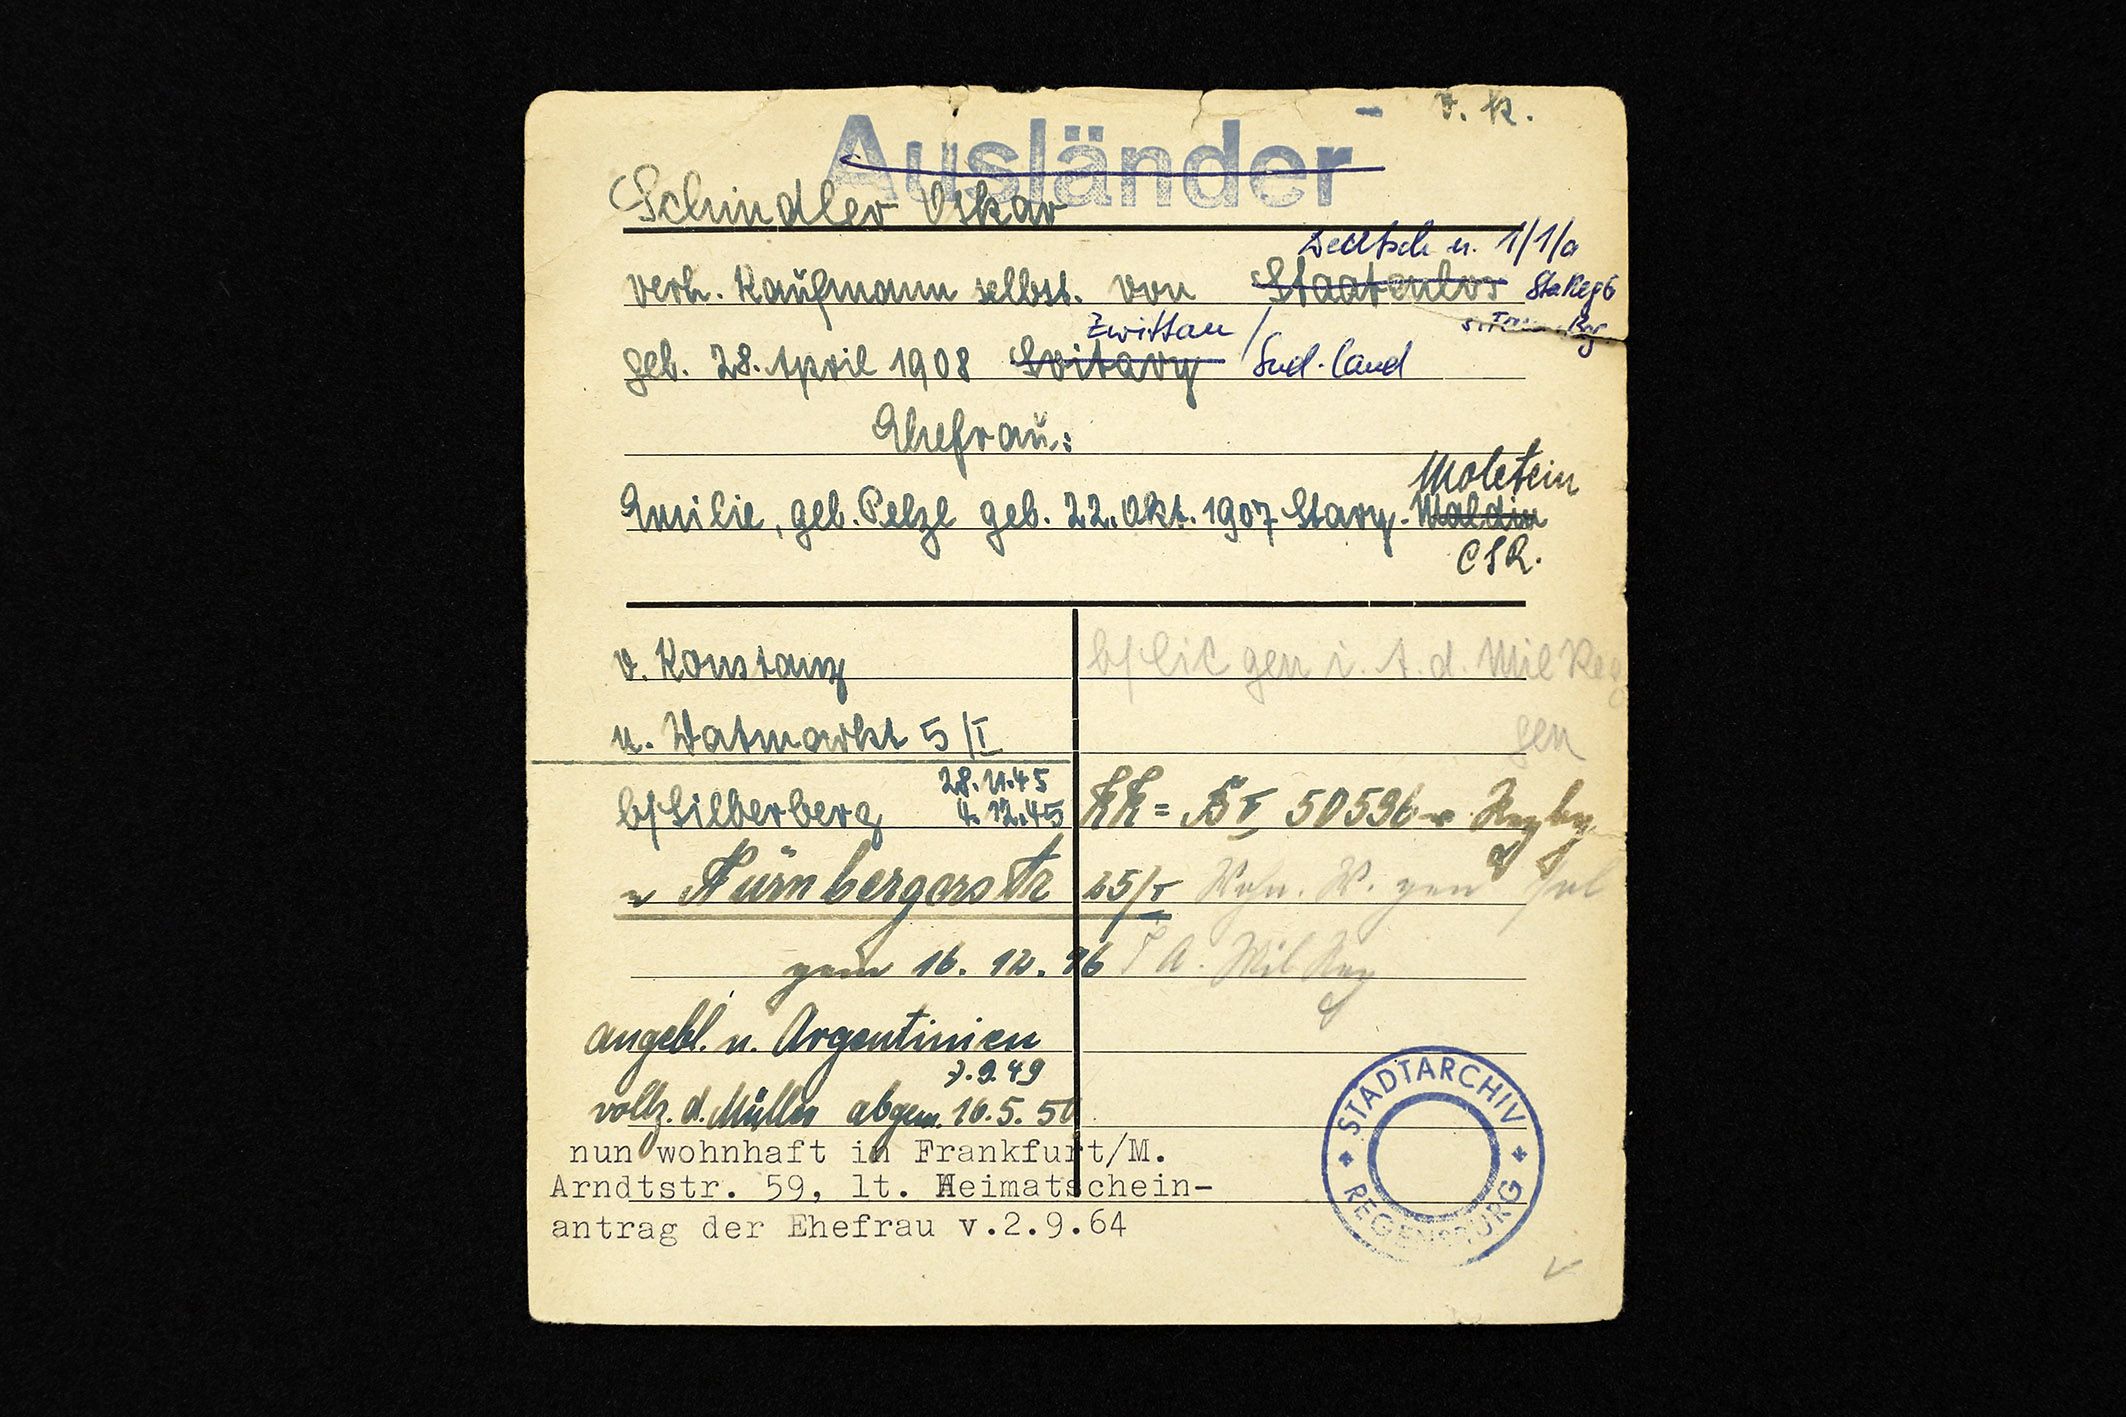 Ausländer
Schindler Oskar
Deutsch n. 1/1/a
verh. Kaufmann selbst. von Staatenlos StaReg6
Zwittau /
geb. 28. April 1908 Svitavy Sud.land
Ehefrau:
Moletein
Emilie, geb. Pelzl geb. 22. Okt. 1907 Stary-Maldin
CSR.
v. Konstanz
b/lic gen i. A. d. Mil Reg
n. Watmarkt 5/I
gen
28.11.45
b/Silberberg 4.12.45
KK = 50596
n Nürnbergerstr 25/I
gem 16. 12. 46
angebl. n. Argentinien
7.9.49
vollz. d. Müller abgem. 16.5.50
nun wohnhaft in Frankfurt/M.
Arndtstr. 59, lt. Heimatschein-
antrag der Ehefrau v.2.9.64
STADTARCHIV
REGENSBURG